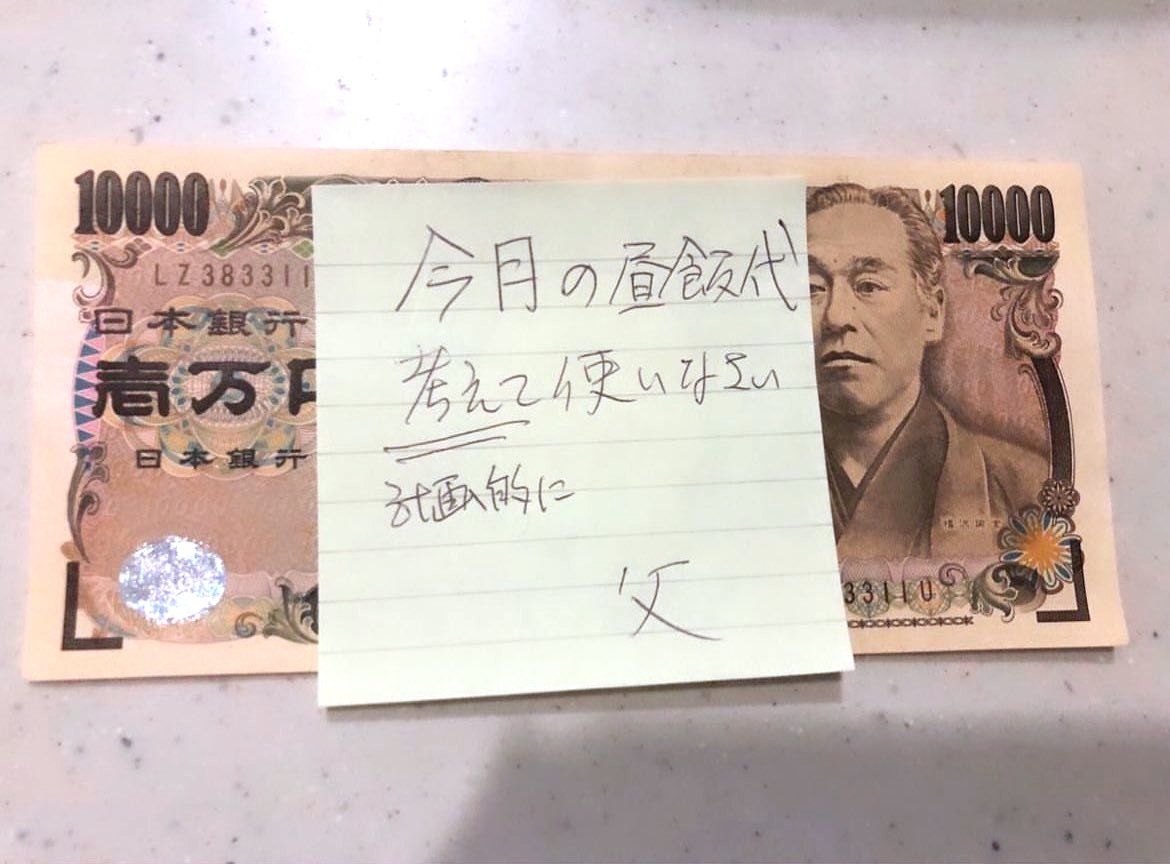 10000
10000
LZ383311
日本銀行
壱万円
日本銀行
今月の昼飯代
考えて使いなさい
計画的に
父
福沢諭吉
3311U